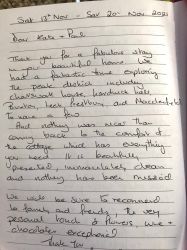 Sat 13th Nov - Sat 20th Nov 2021
Dear Kate + Paul
Thank you for a fabulous stay
in your beautiful home. We
had a fantastic time exploring
the peak district including
Chatsworth house, hardwick hall,
Buxton, and Macclesfield
to name a few.
And nothing was nicer than
coming back to the comfort of
the cottage which has everything
you need. It is beautifully
presented, immaculately clean
and nothing has been missed.
We will be sure to recommend
to family and friends, the very
personal touch of flowers, wine +
chocolates exceptional
Thank You